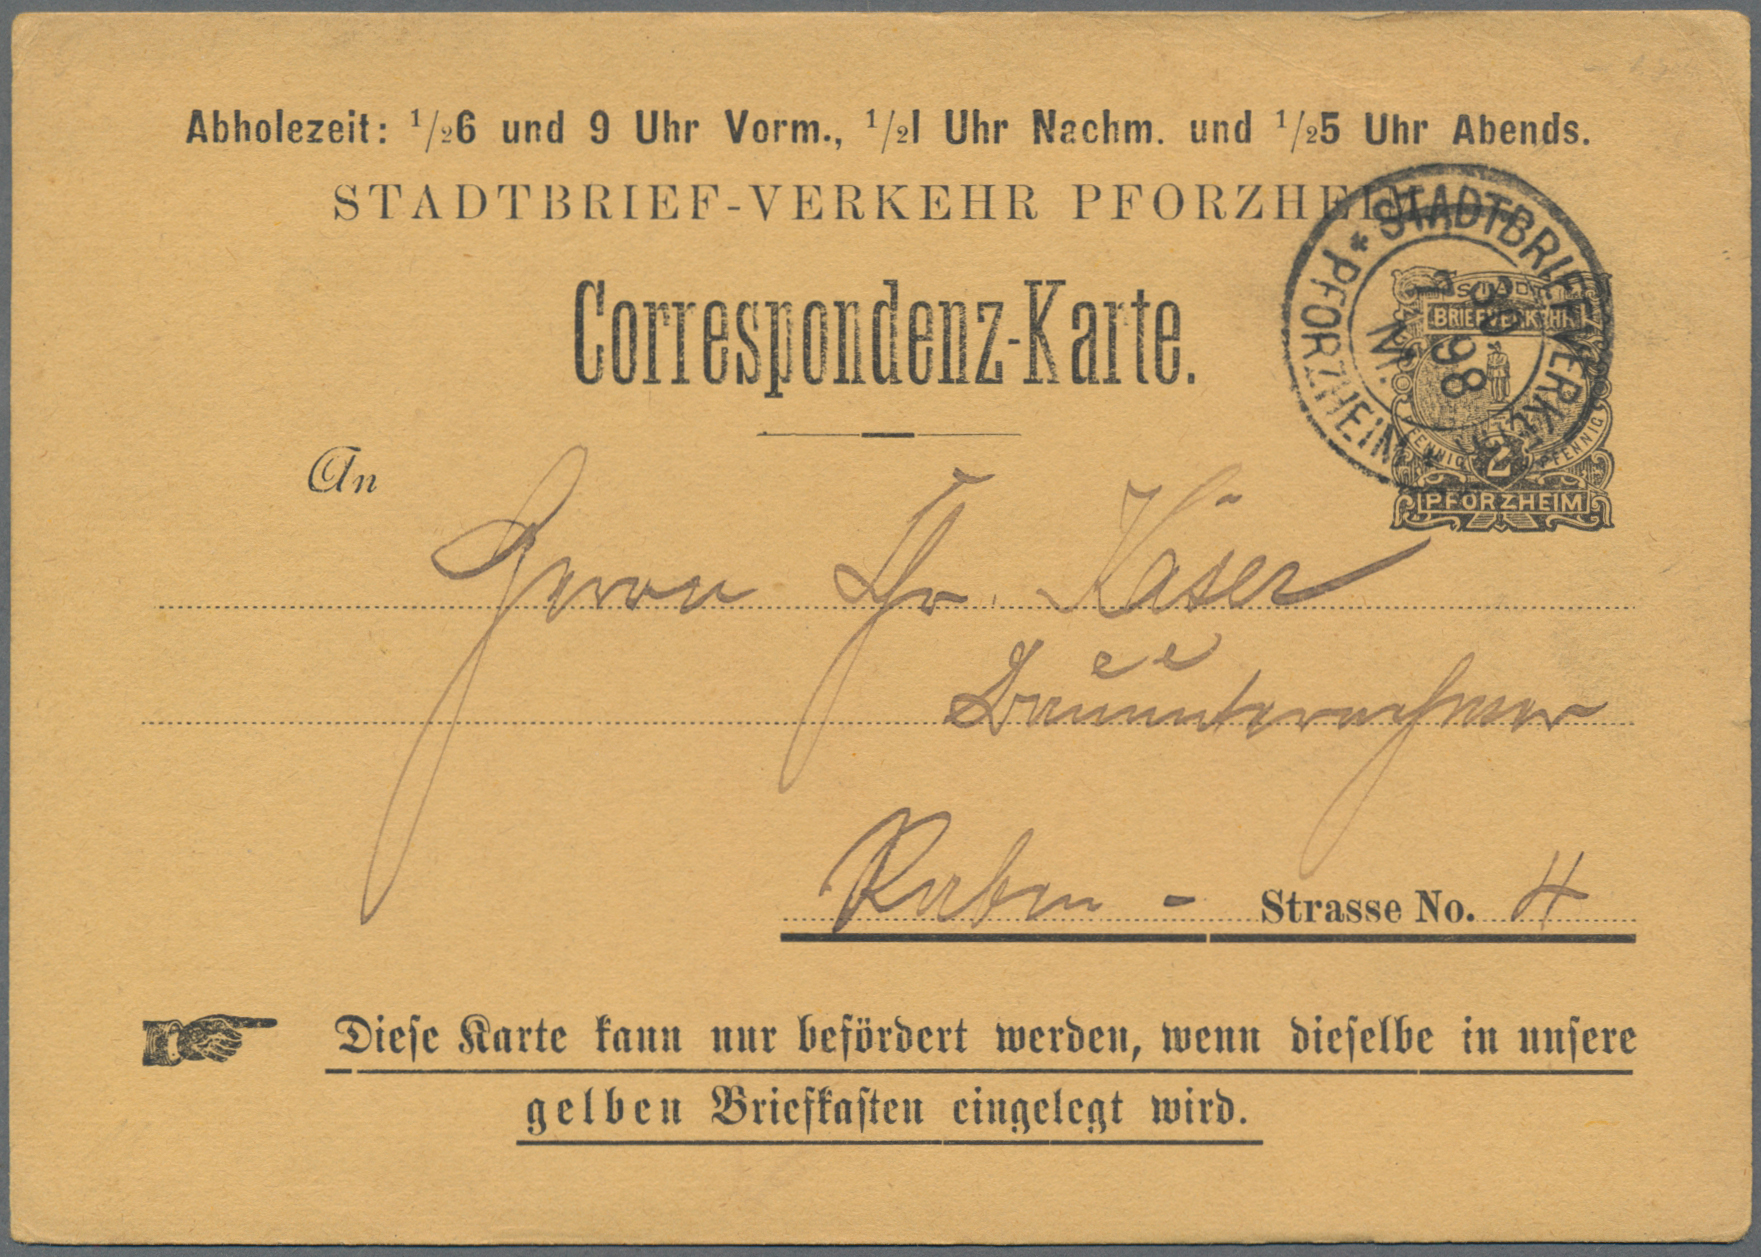 Abholezeit: 1/26 und 9 Uhr Vorm., 1/21 Uhr Nachm. und 1/25 Uhr Abends.
STADTBRIEF-VERKEHR PFORZHEIM
* STADTBRIEFVERKEHR * PFORZHEIM
30 98 M.
STADT
BRIEFVERKEHR
PFENNIG 2 PFENNIG
PFORZHEIM
Correspondenz-Karte.
An
Herrn Fr. Käser
Bauunternehmer
Raben - Strasse No. 4
Dieſe Karte kann nur befördert werden, wenn dieſelbe in unſere
gelben Briefkaſten eingelegt wird.